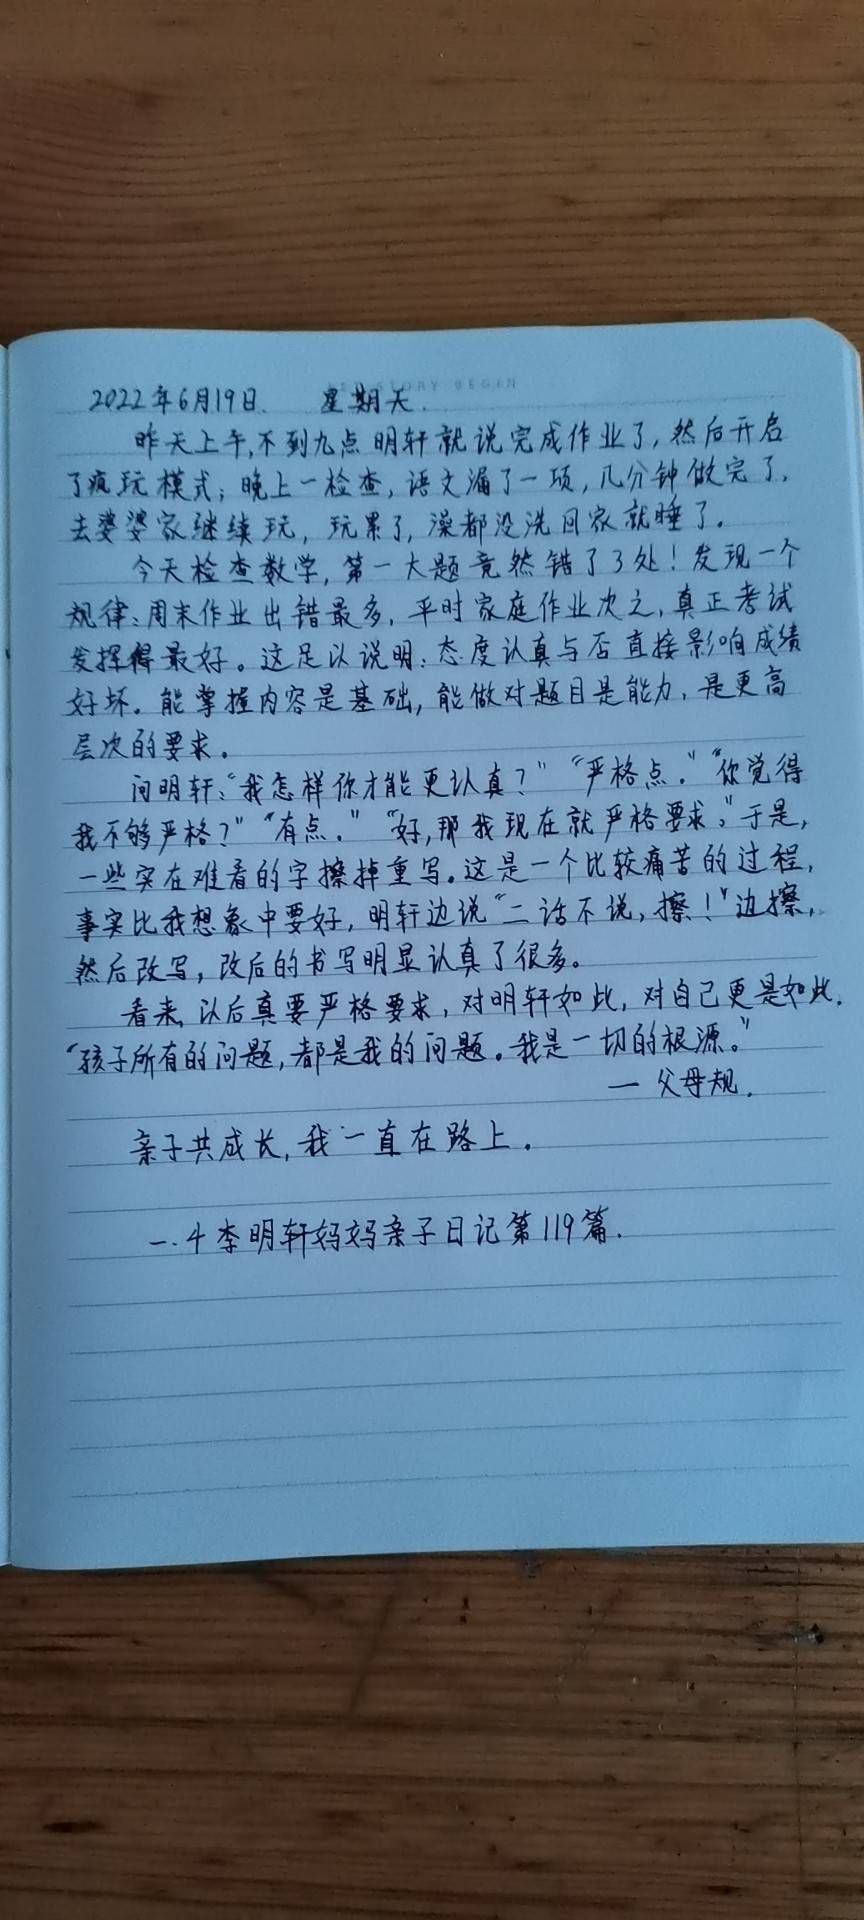 STORY BEGIN
2022年6月19日. 星期天.
昨天上午,不到九点明轩就说完成作业了,然后开启
了疯玩模式;晚上一检查,语文漏了一项,几分钟做完了,
去婆婆家继续玩,玩累了,澡都没洗回家就睡了。
今天检查数学,第一大题竟然错了3处!发现一个
规律:周末作业出错最多,平时家庭作业次之,真正考试
发挥得最好。这足以说明:态度认真与否直接影响成绩
好坏。能掌握内容是基础,能做对题目是能力,是更高
层次的要求。
问明轩:“我怎样你才能更认真?”“严格点。”“你觉得
我不够严格?”“有点。”“好,那我现在就严格要求。”于是,
一些实在难看的字擦掉重写。这是一个比较痛苦的过程,
事实比我想象中要好,明轩边说“二话不说,擦!”边擦,
然后改写,改后的书写明显认真了很多。
看来,以后真要严格要求,对明轩如此,对自己更是如此.
“孩子所有的问题,都是我的问题。我是一切的根源。”
— 父母规.
亲子共成长,我一直在路上.
一.4李明轩妈妈亲子日记第119篇.